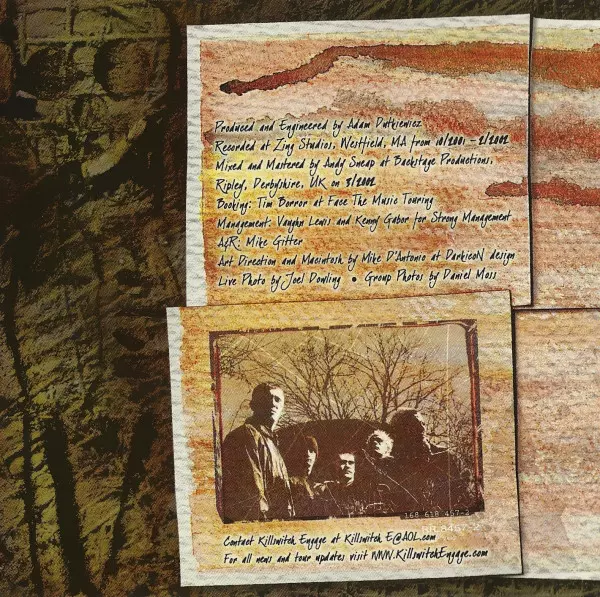 Produced and Engineered by Adam Dutkiewicz
Recorded at Zing Studios, Westfield, MA from 10/2001 - 2/2002
Mixed and Mastered by Andy Sneap at Backstage Productions,
Ripley, Derbyshire, UK on 3/2002
Booking: Tim Borror at Face The Music Touring
Management: Vaughn Lewis and Kenny Gabor for Strong Management
A&R: Mike Gitter
Art Direction and Macintosh by Mike D'Antonio at DarkicoN design
Live Photo by Joel Dowling • Group Photos by Daniel Moss
168 618 457-2
RR 8457-2
Contact Killswitch Engage at Killswitch E@AOL.com
For all news and tour updates visit WWW.KillswitchEngage.com